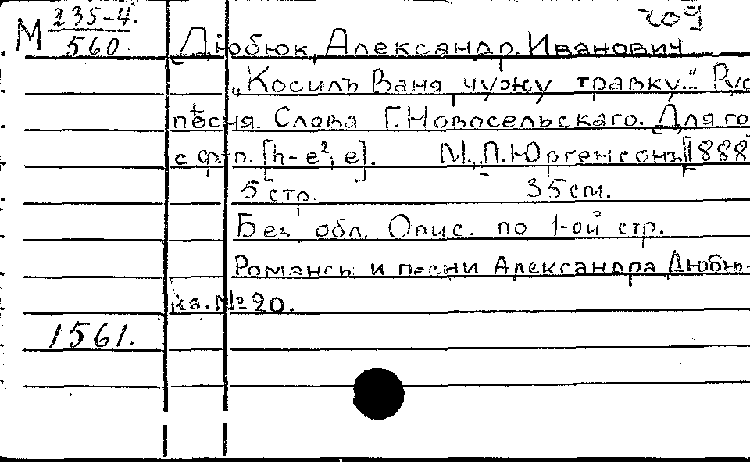 209
М 235-4.
560.
Дюбюк, Александр Иванович
„Косилъ Ваня чужу травку.“ Рус
пѣсня. Слова Г. Новосельскаго. Для го
с ф-п. [h-e², e]. М., П. Юргенсонъ, [1888]
5 стр. 35 см.
Без обл. Опис. по 1-ой стр.
Романсы и песни Александра Дюбю-
ка. №20.
1561.